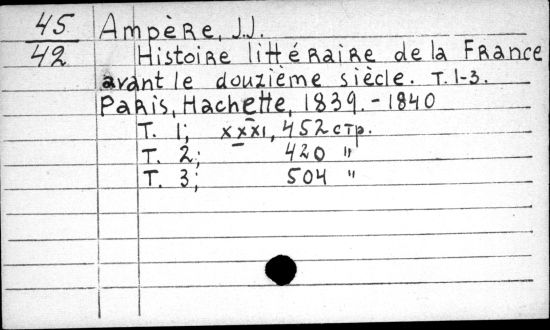 45 Ampère, J.J.
42 Histoire littéraire de la France
avant le douzième siècle. T. 1-3.
Paris, Hachette, 1839. - 1840
T. 1; XXXI, 452 стр.
T. 2; 420 "
T. 3; 504 "